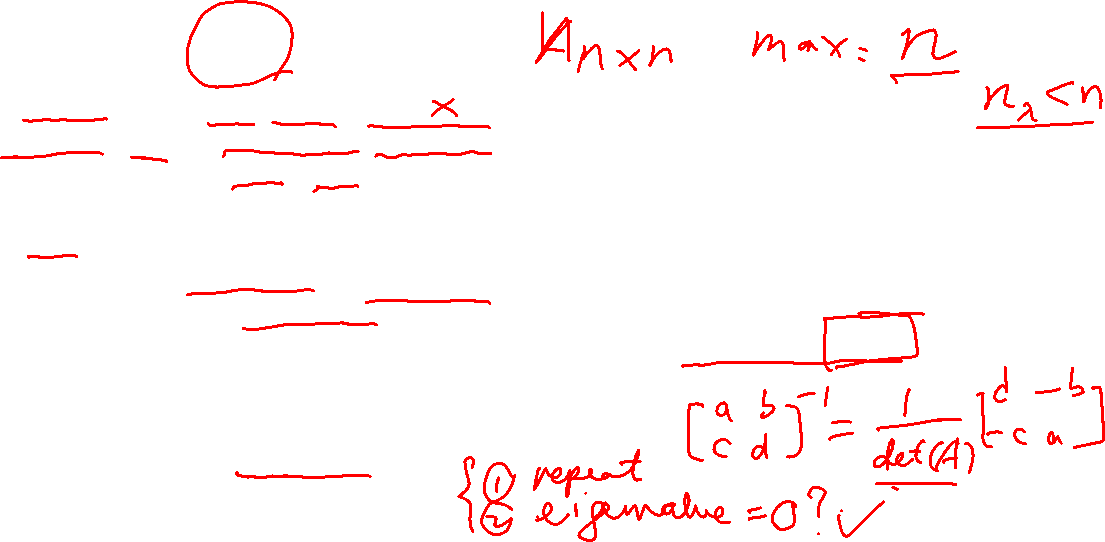 A n×n max: n
n_λ < n
x
[a b; c d]^-1 = 1/det(A) [d -b; -c a]
{ ① repeat
② eigenvalue = 0? ✓